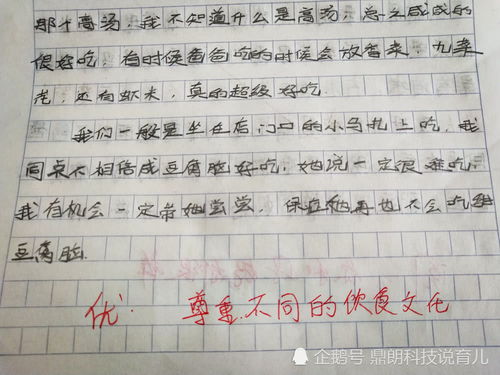 那个高汤，我不知道什么是高汤，总之咸咸的
很好吃，有时候爸爸吃的时候会放香菜，九菜
老，还有虾米，真的超级好吃.
我们一般是坐在店门口的小马扎上吃，我
同桌不相信咸豆腐脑好吃，她说一定很难吃，
我有机会一定带她尝尝，保证她再也不会吃甜
豆腐脑.
优. 尊重.不同的饮食文化
企鹅号 鼎朗科技说育儿